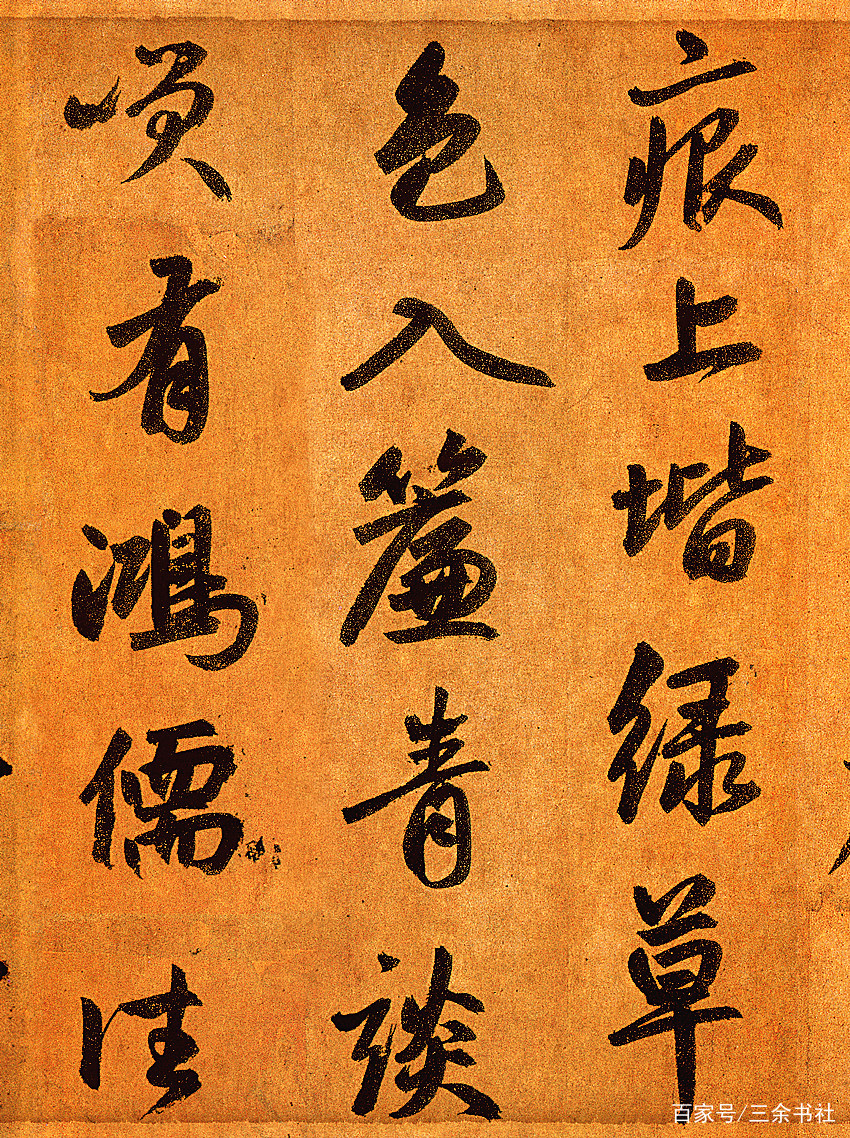 痕上堦緑草
色入簾青談
咲有鴻儒往
百家号/三余书社